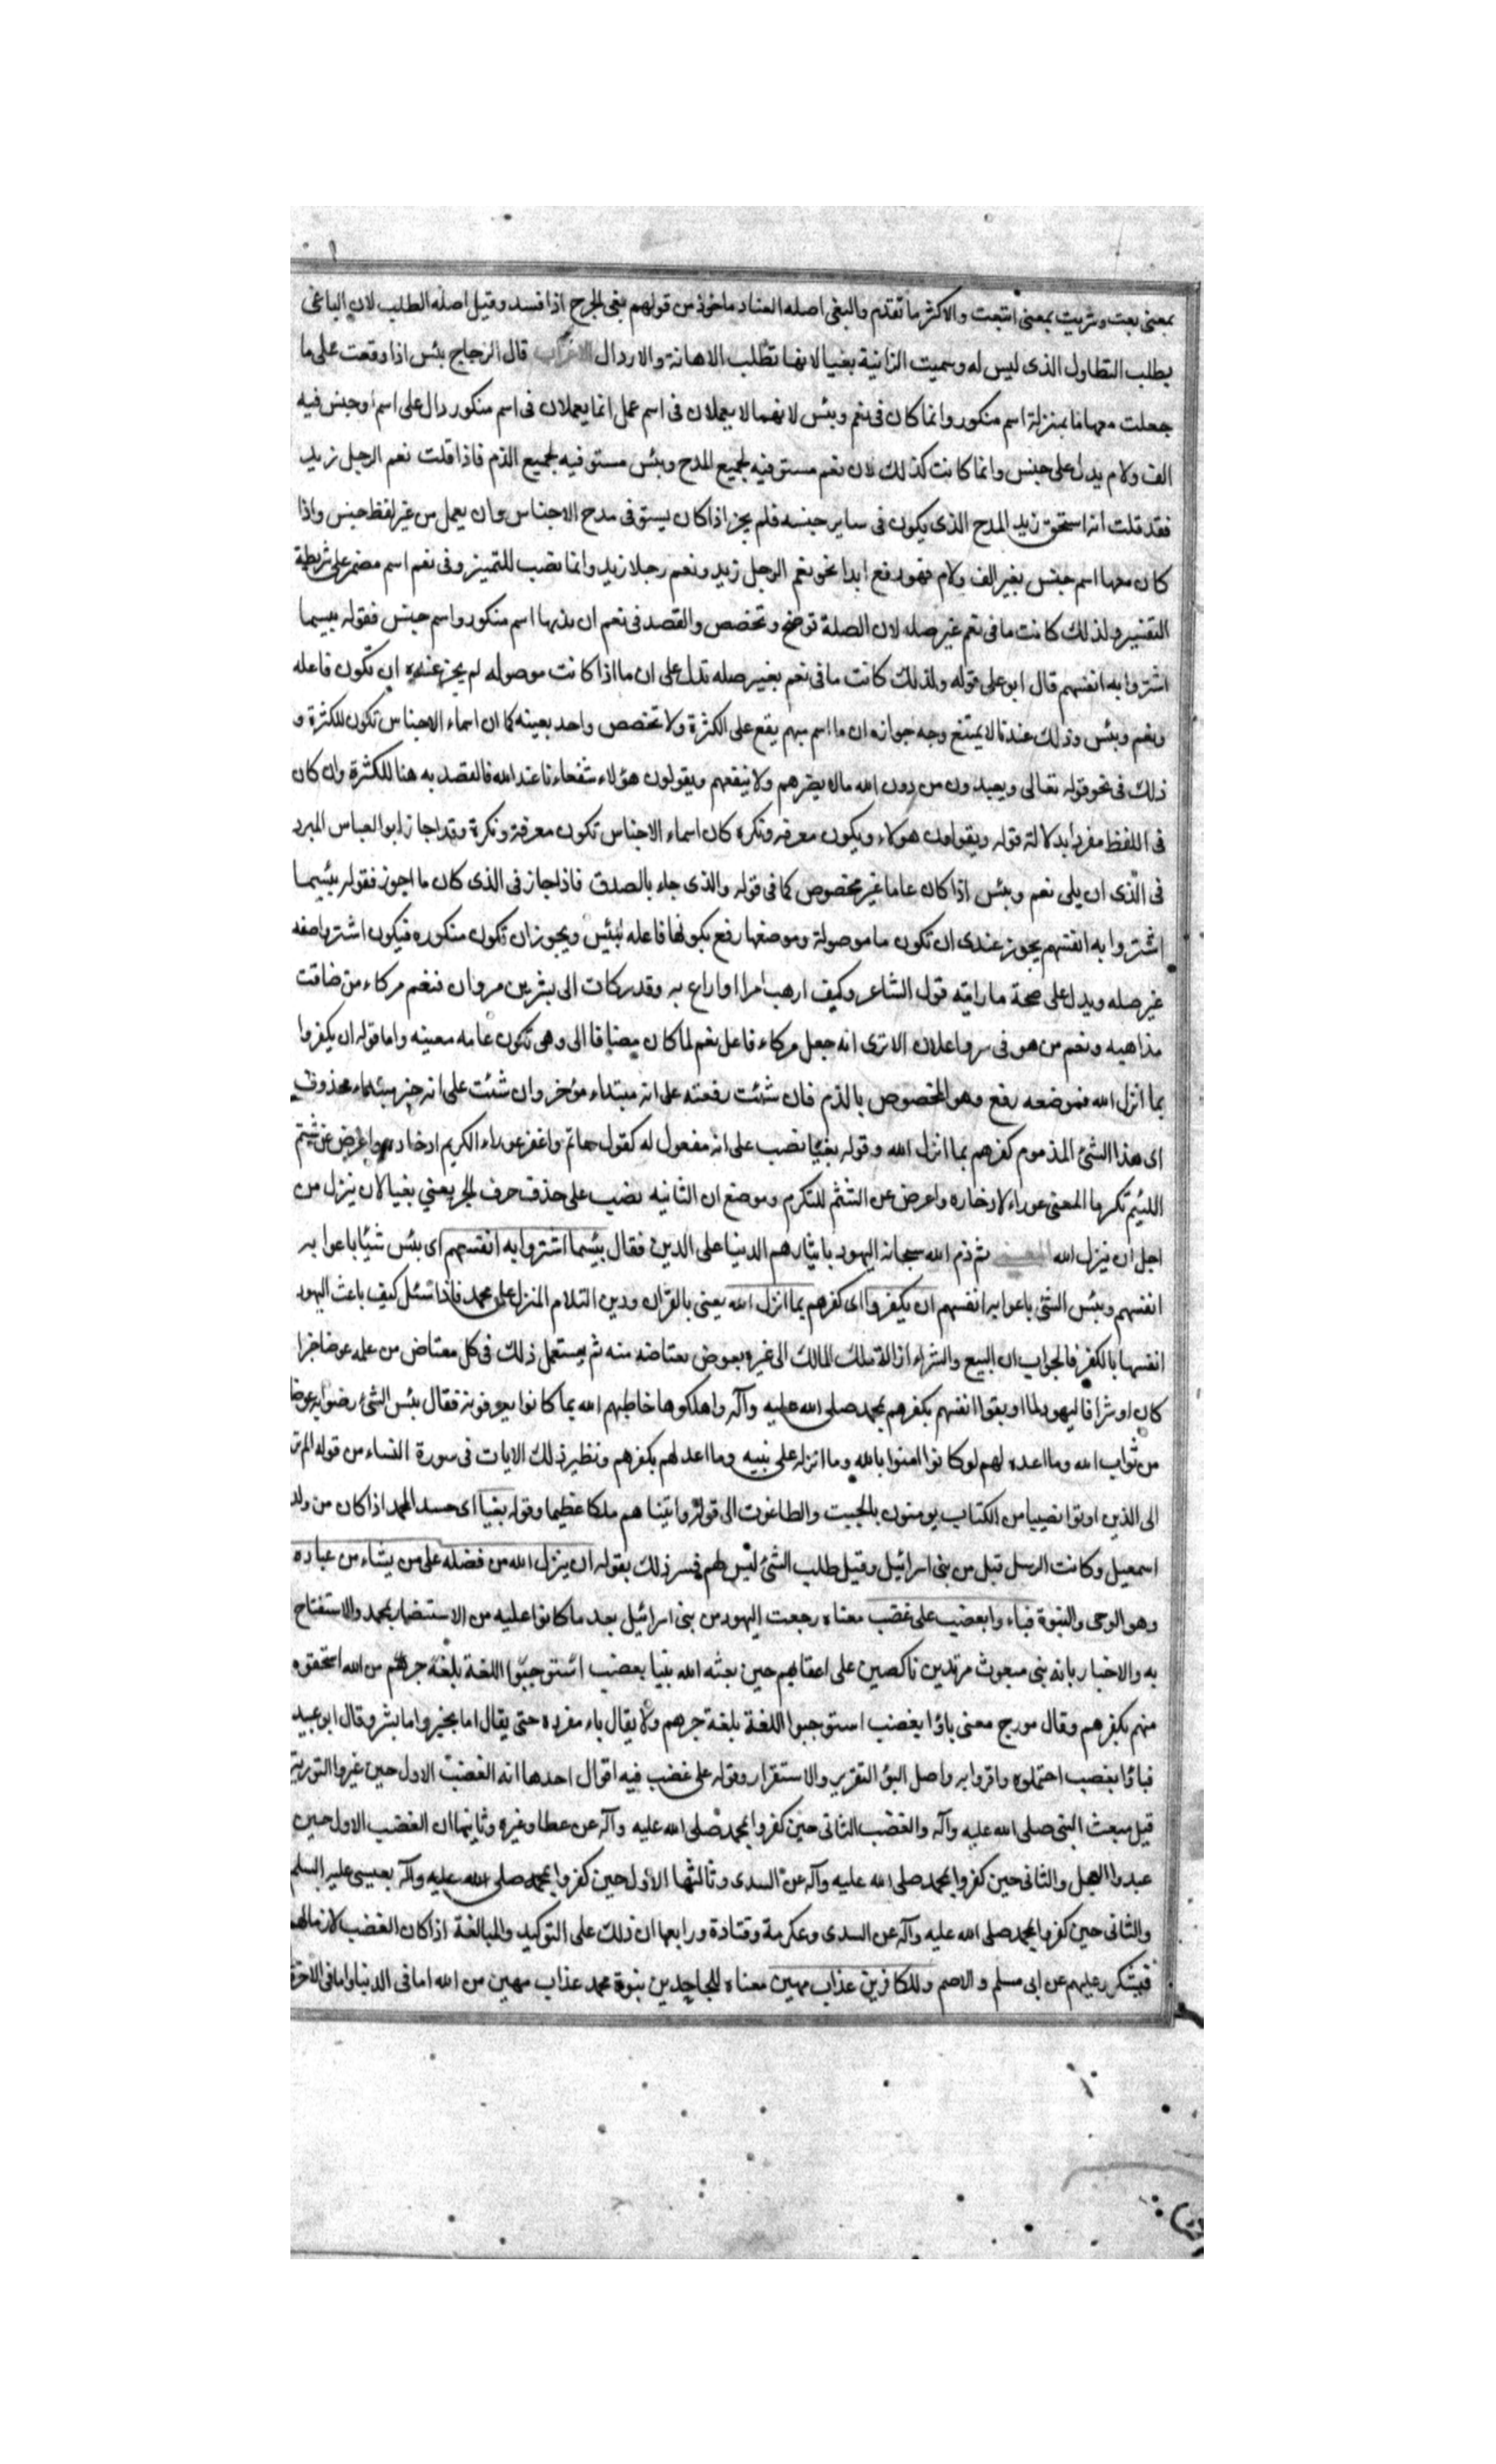 بمعنى بعت وشريت بمعنى ابتعت والاكثر ما تقدم والبغى اصله الفساد ماخوذ من قولهم بغى الجرح اذا فسد وقيل اصله الطلب لان الباغى
يطلب التطاول الذى ليس له وسميت الزانية بغيا لانها تطلب الاهانة والاردال الاعراب قال الزجاج بئس اذا وقعت على ما
جعلت معها ما بمنزلة اسم منكور وانما كان فى نعم وبئس لانهما لا يعملان فى اسم عمل انما يعملان فى اسم منكور دال على اسم او جنس فيه
الف ولام يدل على جنس وانما كانت كذلك لان نعم مستوفيه لجميع المدح وبئس مستوفيه لجميع الذم فاذا قلت نعم الرجل زيد
فقد قلت انه استحق زيد المدح الذى يكون فى ساير جنسه فلم يجز اذا كان يستوفى مدح الاجناس وان يعمل من غير لفظ جنس واذا
كان معها اسم جنس بغير الف ولام فهو رفع ابدا نحو نعم الرجل زيد ونعم رجلا زيد وانما نصب للتميز وفى نعم اسم مضمر على شريطة
التفسير ولذلك كانت ما فى نعم غير صله لان الصلة توضح وتخصص والقصد فى نعم ان يليها اسم منكور واسم جنس فقوله بئسما
اشتروا به انفسهم قال ابو على قوله ولذلك كانت ما فى نعم بغير صله تدل على ان ما اذا كانت موصوله لم يجز عنده ان تكون فاعله
ونعم وبئس وذلك عندنا لا يمتنع وجه جوازه ان ما اسم مبهم يقع على الكثرة ولا تخصص واحد بعينه كما ان اسماء الاجناس تكون للكثرة و
ذلك فى نحو قوله تعالى ويعبدون من دون الله ما لا يضرهم ولا ينفعهم ويقولون هؤلاء شفعاءنا عند الله فالقصد به هنا للكثرة وان كان
فى اللفظ مفردا بدلالة قوله ويقولون هولاء ويكون معرفه ونكره كان اسماء الاجناس تكون معرفة ونكرة وقد اجاز ابو العباس المبرد
فى الذى ان يلى نعم وبئس اذا كان عاما غير مخصوص كما فى قوله والذى جاء بالصدق فاذا جاز فى الذى كان ما اجوز فقوله بئسما
اشتروا به انفسهم يجوز عندى ان تكون ما موصولة وموضعها رفع بكونها فاعله لبئس ويجوز ان تكون منكوره فيكون اشتروا صفه
غير صله ويدل على صحة ما رايته قول الشاعر وكيف ارهب امرا او اراع به وقد زكات الى بشر بن مروان فنعم مزكاء من ضاقت
مذاهبه ونعم من هو فى سر واعلان الا ترى انه جعل مزكاء فاعل نعم لما كان مضافا الى وهى تكون عامه معينه واما قوله ان يكفروا
بما انزل الله فموضعه رفع وهو المخصوص بالذم فان شئت رفعته على انه مبتداء مؤخر وان شئت على انه خبر مبتداء محذوف
اى هذا الشئ المذموم كفرهم بما انزل الله وقوله بغيا نصب على انه مفعول له كقول حاتم واغفر عوراء الكريم ادخاره واعرض عن شتم
اللئيم تكرما المعنى عوراء لادخاره واعرض عن الشتم للتكرم وموضع ان الثانيه نصب على حذف حرف الجر يعنى بغيا لان ينزل من
اجل ان ينزل الله المعنى ثم ذم الله سبحانه اليهود بايثارهم الدنيا على الدين فقال بئسما اشتروا به انفسهم اى بئس شيئا باعوا به
انفسهم وبئس الشئ باعوا به انفسهم ان يكفروا اى كفرهم بما انزل الله يعنى بالقران ودين السلام المنزل على محمد فاذا سئل كيف باعت اليهود
انفسها بالكفر فالجواب ان البيع والشراء ازالة ملك المالك الى غيره بعوض يعتاضه منه ثم يستعمل ذلك فى كل معتاض من عمله عوضا خيرا
كان او شرا فاليهود لما اوبقوا انفسهم بكفرهم بمحمد صلى الله عليه وآله واهلكوها خاطبهم الله بما كانوا يعرفونه فقال بئس الشئ رضوا به عوضا
من ثواب الله وما اعده لهم لو كانوا امنوا بالله وما انزله على نبيه وما اعد لهم بكفرهم ونظير ذلك الايات فى سورة النساء من قوله الم تر
الى الذين اوتوا نصيبا من الكتاب يومنون بالجبت والطاغوت الى قوله واتيناهم ملكا عظيما وقوله بغيا اى حسد المحمد اذا كان من ولد
اسمعيل وكانت الرسل قبل من بنى اسرائيل وقيل طلب الشئ ليس لهم فسر ذلك بقوله ان ينزل الله من فضله على من يشاء من عباده
وهو الوحى والنبوة فباءوا بغضب على غضب معناه رجعت اليهود من بنى اسرائيل بعد ما كانوا عليه من الاستنصار بمحمد والاستفتاح
به والاخبار بانه نبى مبعوث مرتدين ناكصين على اعقابهم حين بعثه الله نبيا بغضب استوجبوا اللغة بلغة جرهم من الله استحقوه
منهم بكفرهم وقال مورج معنى باؤا بغضب استوجبوا اللغة بلغة جرهم ولا يقال باء مفرده حتى يقال اما بخير واما بشر وقال ابو عبيد
فباؤا بغضب احتملوه واقروا به واصل البؤ التقرير والاستقرار وقوله على غضب فيه اقوال احدها انه الغضب الاول حين غيروا التورية
قبل مبعث النبى صلى الله عليه وآله والغضب الثانى حين كفروا بمحمد صلى الله عليه وآله عن عطا وغيره وثانيها ان الغضب الاول حين
عبدوا العجل والثانى حين كفروا بمحمد صلى الله عليه وآله عن السدى وثالثها الأول حين كفروا بمحمد صلى الله عليه وآله بعيسى عليه السلم
والثانى حين كفروا بمحمد صلى الله عليه وآله عن السدى وعكرمة وقتادة ورابعها ان ذلك على التوكيد والمبالغة اذا كان الغضب لازما لهم
فيتكرر عليهم عن ابى مسلم والاصم وللكافرين عذاب مهين معناه للجاحدين بنبوة محمد عذاب مهين من الله اما فى الدنيا واما فى الاخرة